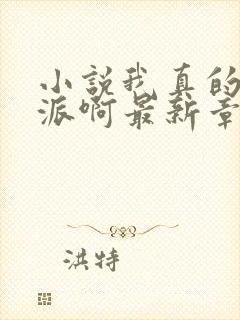 小說我真的
派啊最新章
洪特